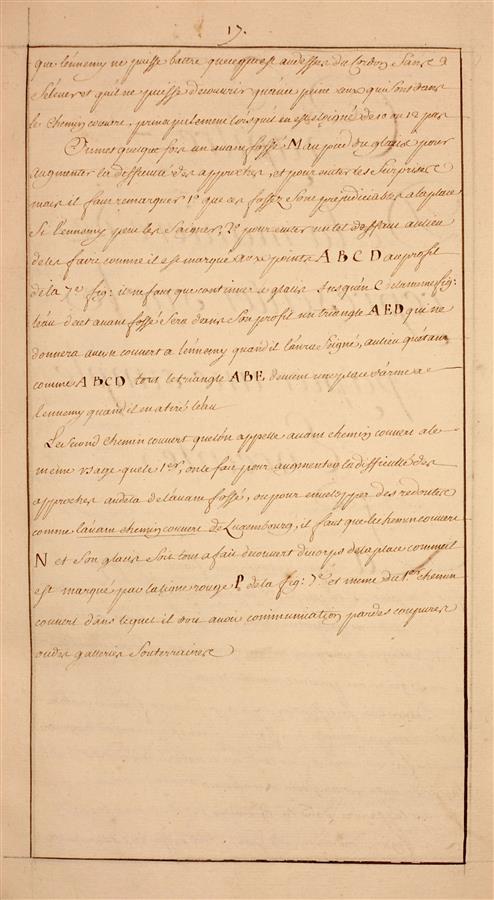 17.
que lennemy ne puisse battre que ce qui est au dessus du Cordon sans
s'elever et quil ne puisse decouvrir qu'avec peine ceux qui sont dans
le chemin couvert, principalement lorsquil en est eloigné de 10 ou 12 pas
quelque fois un avant fossé N au pied du glacis pour
augmenter la difficulté des approches, et pour eviter les surprises
mais il faut remarquer 1° que ces fossez sont prejudiciables a la place
si lennemy peut les saigner, 2° pour eviter un tel deffaut au lieu
de les faire comme il est marqué aux points A B C D au profil
de la 7e fig: il ne faut que continuer le glacis jusqu'en E de la meme fig:
leau de cet avant fossé sera dans son profil un triangle AED qui ne
donnera aucun couvert a lennemy quand il l'aura seigné, au lieu qu'etant
comme ABCD tout le triangle ABE devient une place d'arme a
lennemy quand il en a tiré leau
Le second chemin couvert que lon appelle avant chemin couvert a le
même usage que le 1er, on le fait pour augmenter la difficulté des
approches au dela de lavant fossé, ou pour envelopper des redoutes
comme lavant chemin couvert de Luxembourg, il faut que le chemin couvert
N et son glacis soit tout a fait decouvert du corps de la place comme il
est marqué par la ligne rouge P. de la fig: 7e et meme du 1er chemin
couvert dans lequel il doit avoir communication par des coupures
ou des galleries souterraines